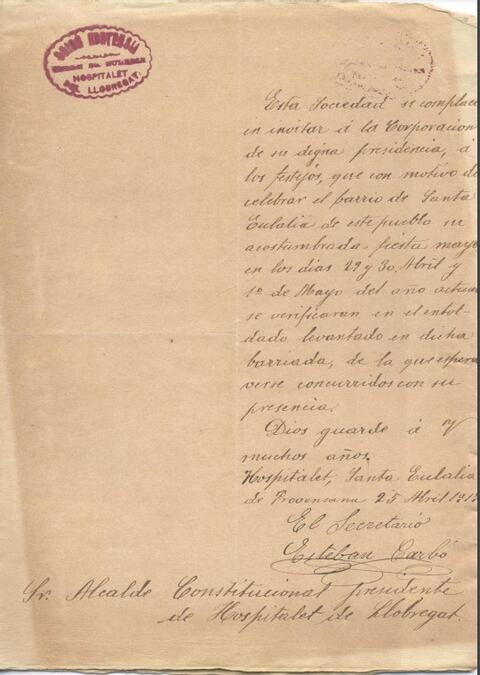 HOSPITALET
DEL LLOBREGAT.
Esta Sociedad se complace
en invitar á la Corporacion
de su digna presidencia, á
los festejos, que con motivo de
celebrar el barrio de Santa
Eulalia de este pueblo su
acostumbrada fiesta mayor
en los dias 29 y 30 Abril y
1º de Mayo del año actual
se verificaran en el entol-
dado levantado en dicha
barriada, de la que espera
verse concurridos con su
presencia.
Dios guarde á V
muchos años.
Hospitalet, Santa Eulalia
de Provensana 25 Abril
El Secretario
Esteban Carbó
Sr. Alcalde Constitucional presidente
de Hospitalet de Llobregat.